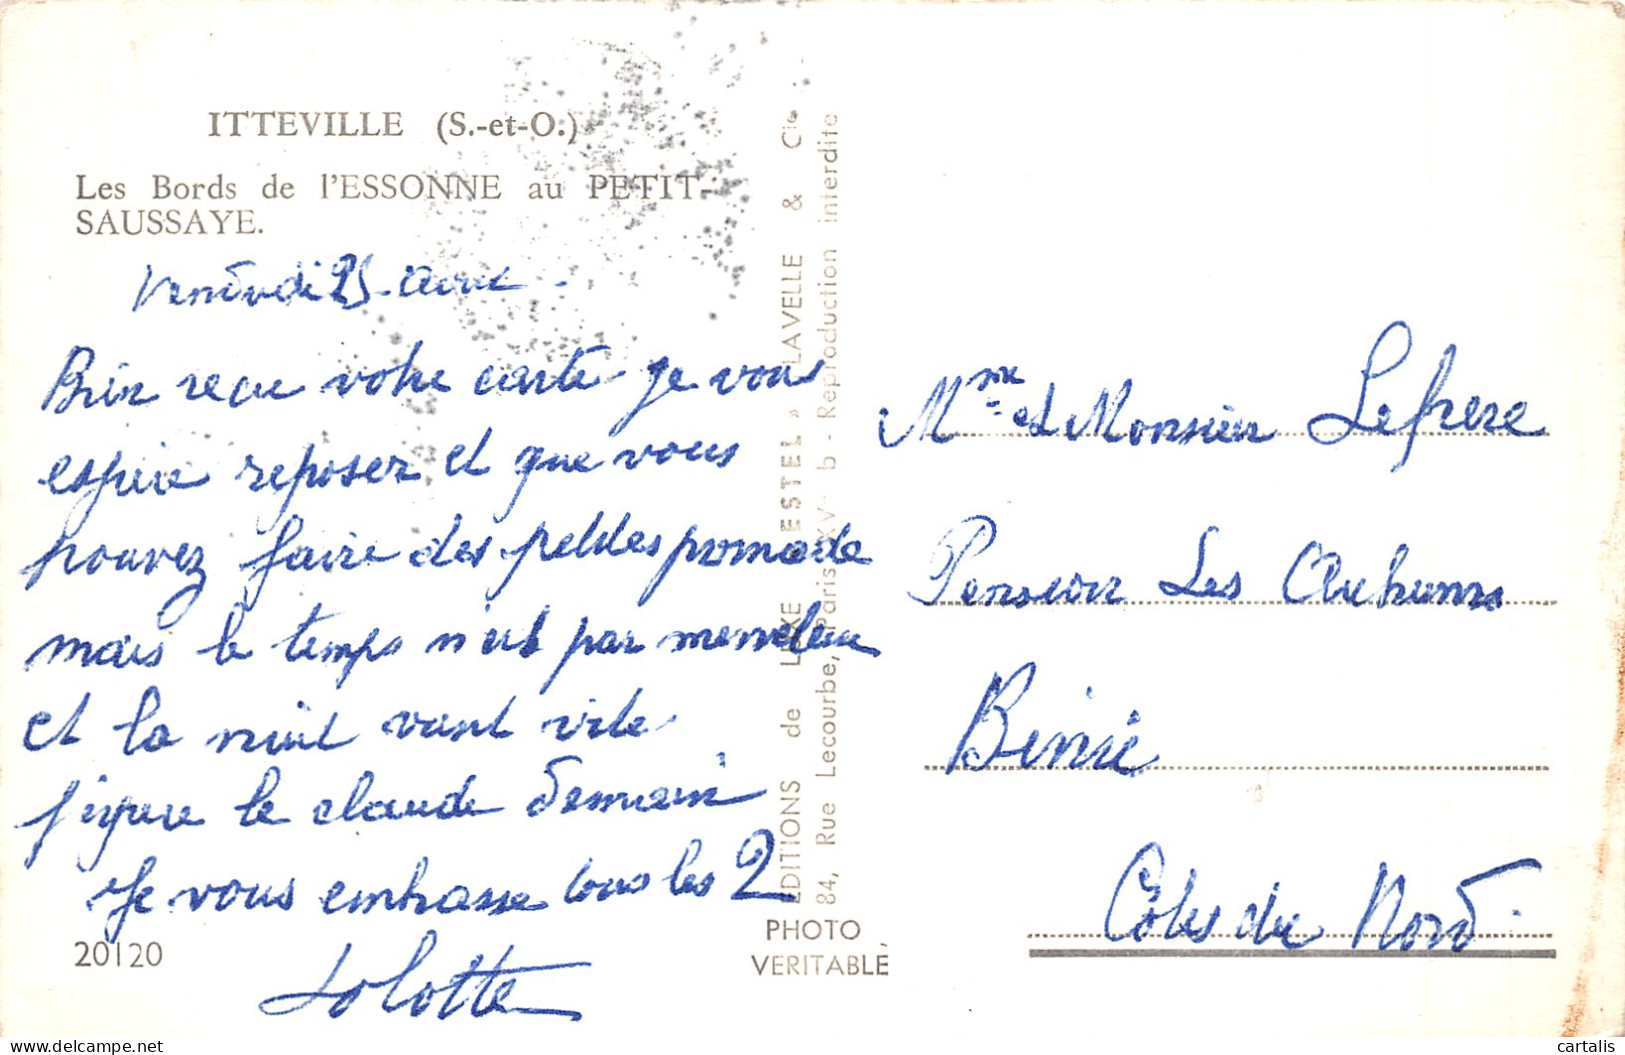 ITTEVILLE (S.-et-O.)
Les Bords de l'ESSONNE au PETIT-
SAUSSAYE.
Vendredi 25 avril
Bien reçu votre carte je vous
espère reposer et que vous
pouvez faire des petites promade
mais le temps n'est pas merveleux
et la nuit vant vite
le claude demain
Je vous embrasse tous les 2
Lolotte
20120
EDITIONS de LUXE « ESTEL » LAVELLE & Cie
84, Rue Lecourbe, Paris XVe - Reproduction interdite
PHOTO
VERITABLE
Mme et Monsieur Lefrere
Pension Les
Binic
Côtes du Nord
cartalis